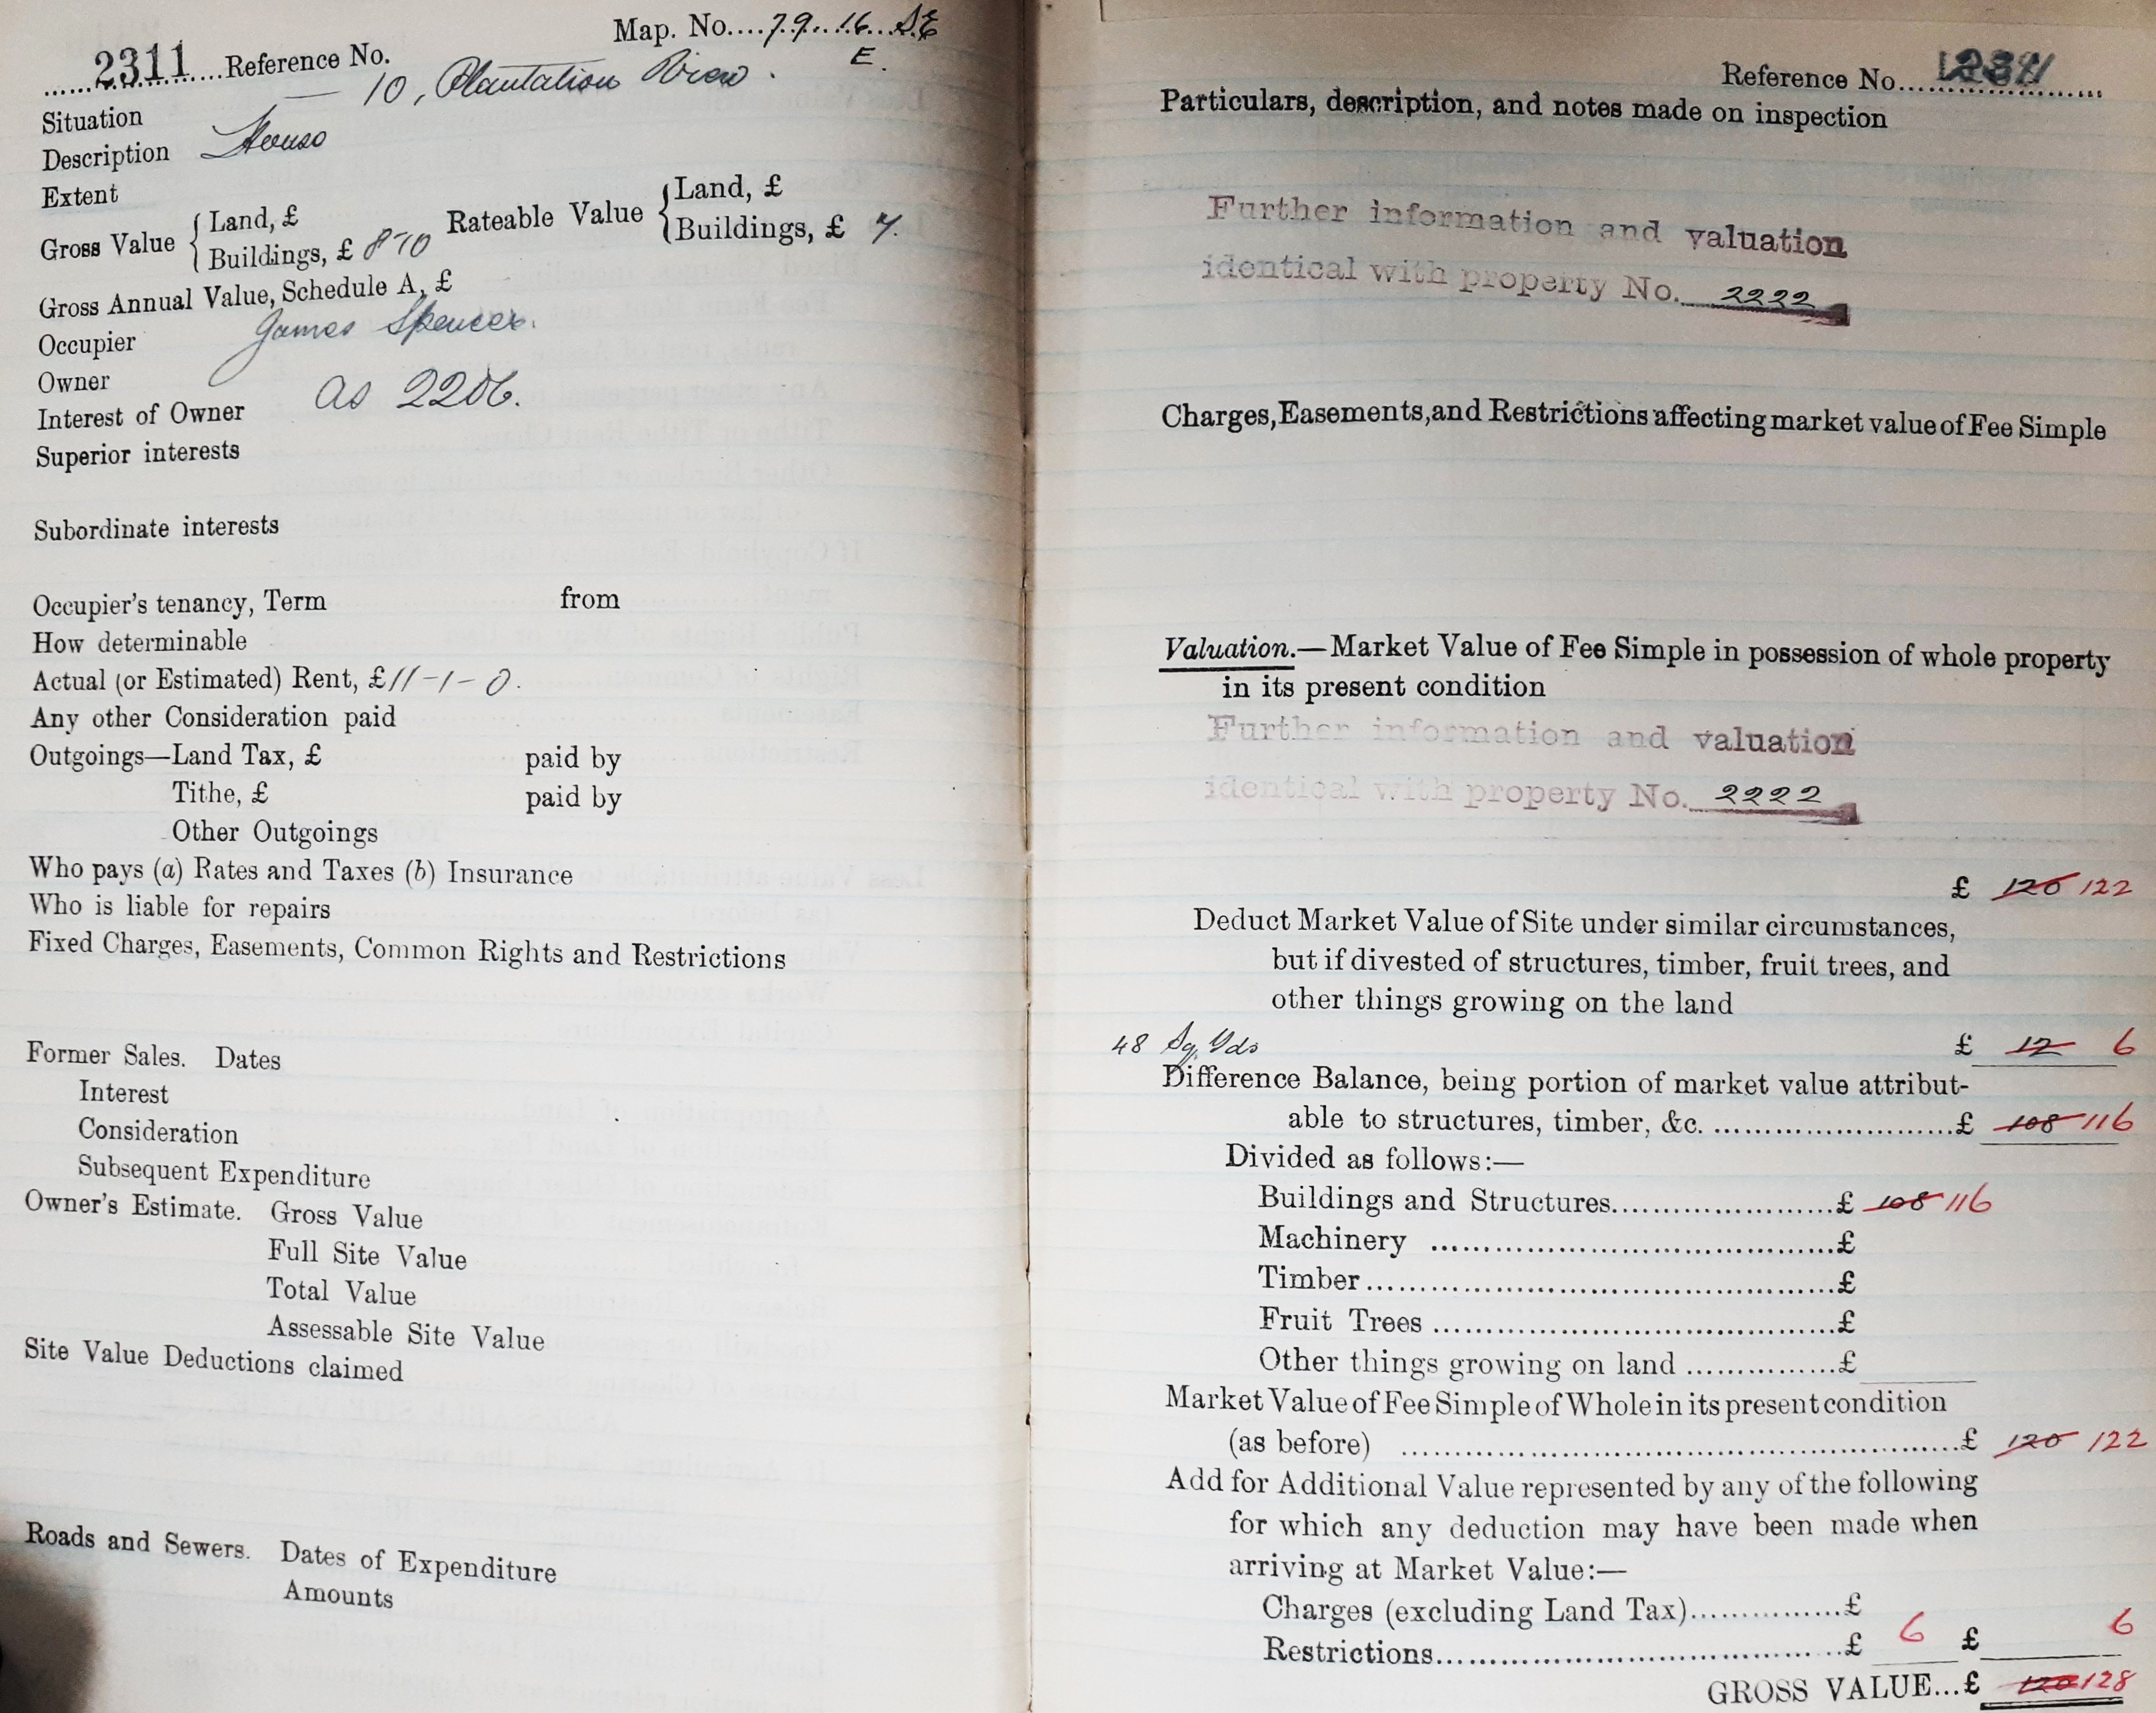 Map. No....79..16...S.E
E.
2311 Reference No.
Situation — 10, Plantation View.
Description House
Extent
Gross Value { Land, £ Rateable Value { Land, £
Buildings, £ 8-10 Buildings, £ 7.
Gross Annual Value, Schedule A, £
Occupier James Spencer.
Owner
Interest of Owner as 2206.
Superior interests
Subordinate interests
Occupier's tenancy, Term from
How determinable
Actual (or Estimated) Rent, £11-1-0.
Any other Consideration paid
Outgoings—Land Tax, £ paid by
Tithe, £ paid by
Other Outgoings
Who pays (a) Rates and Taxes (b) Insurance
Who is liable for repairs
Fixed Charges, Easements, Common Rights and Restrictions
Former Sales. Dates
Interest
Consideration
Subsequent Expenditure
Owner's Estimate. Gross Value
Full Site Value
Total Value
Assessable Site Value
Site Value Deductions claimed
Roads and Sewers. Dates of Expenditure
Amounts
Reference No.
Particulars, description, and notes made on inspection
Further information and valuation
identical with property No. 2222
Charges, Easements, and Restrictions affecting market value of Fee Simple
Valuation.—Market Value of Fee Simple in possession of whole property
in its present condition
Further information and valuation
identical with property No. 2222
£ 120 122
Deduct Market Value of Site under similar circumstances,
but if divested of structures, timber, fruit trees, and
other things growing on the land
48 Sq. Yds £ 12 6
Difference Balance, being portion of market value attribut-
able to structures, timber, &c. ........................£ 108 116
Divided as follows:—
Buildings and Structures......................£ 108 116
Machinery ........................................£
Timber...............................................£
Fruit Trees ........................................£
Other things growing on land ...............£
Market Value of Fee Simple of Whole in its present condition
(as before) ........................................................£ 120 122
Add for Additional Value represented by any of the following
for which any deduction may have been made when
arriving at Market Value:—
Charges (excluding Land Tax)...............£
Restrictions.......................................£ 6 £ 6
GROSS VALUE...£ 120 128